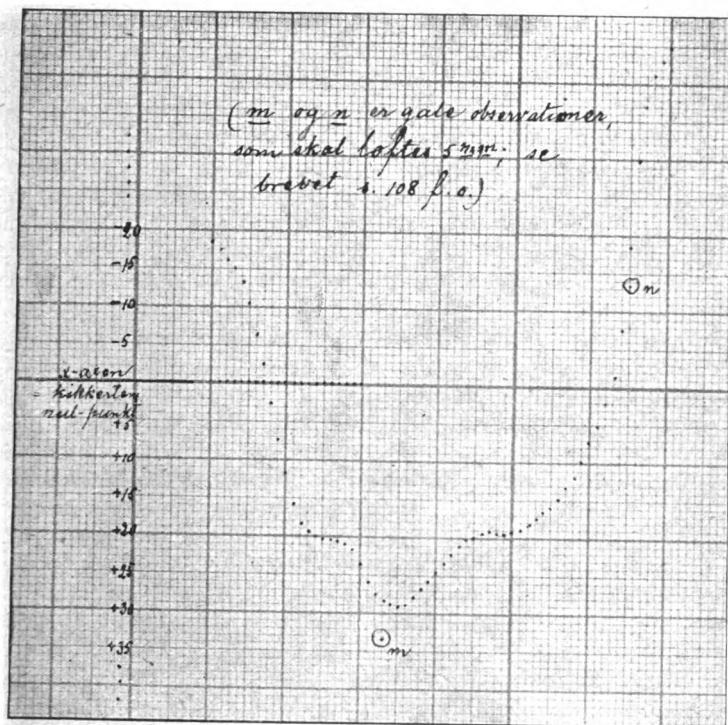 (m og n er gale observationer,
som skal løftes 5 mm; se
brevet s. 108 f.o.)
-20
-15
-10
-5
x-axen
= kikkertens
nul-punkt
+5
+10
+15
+20
+25
+30
+35
n
m